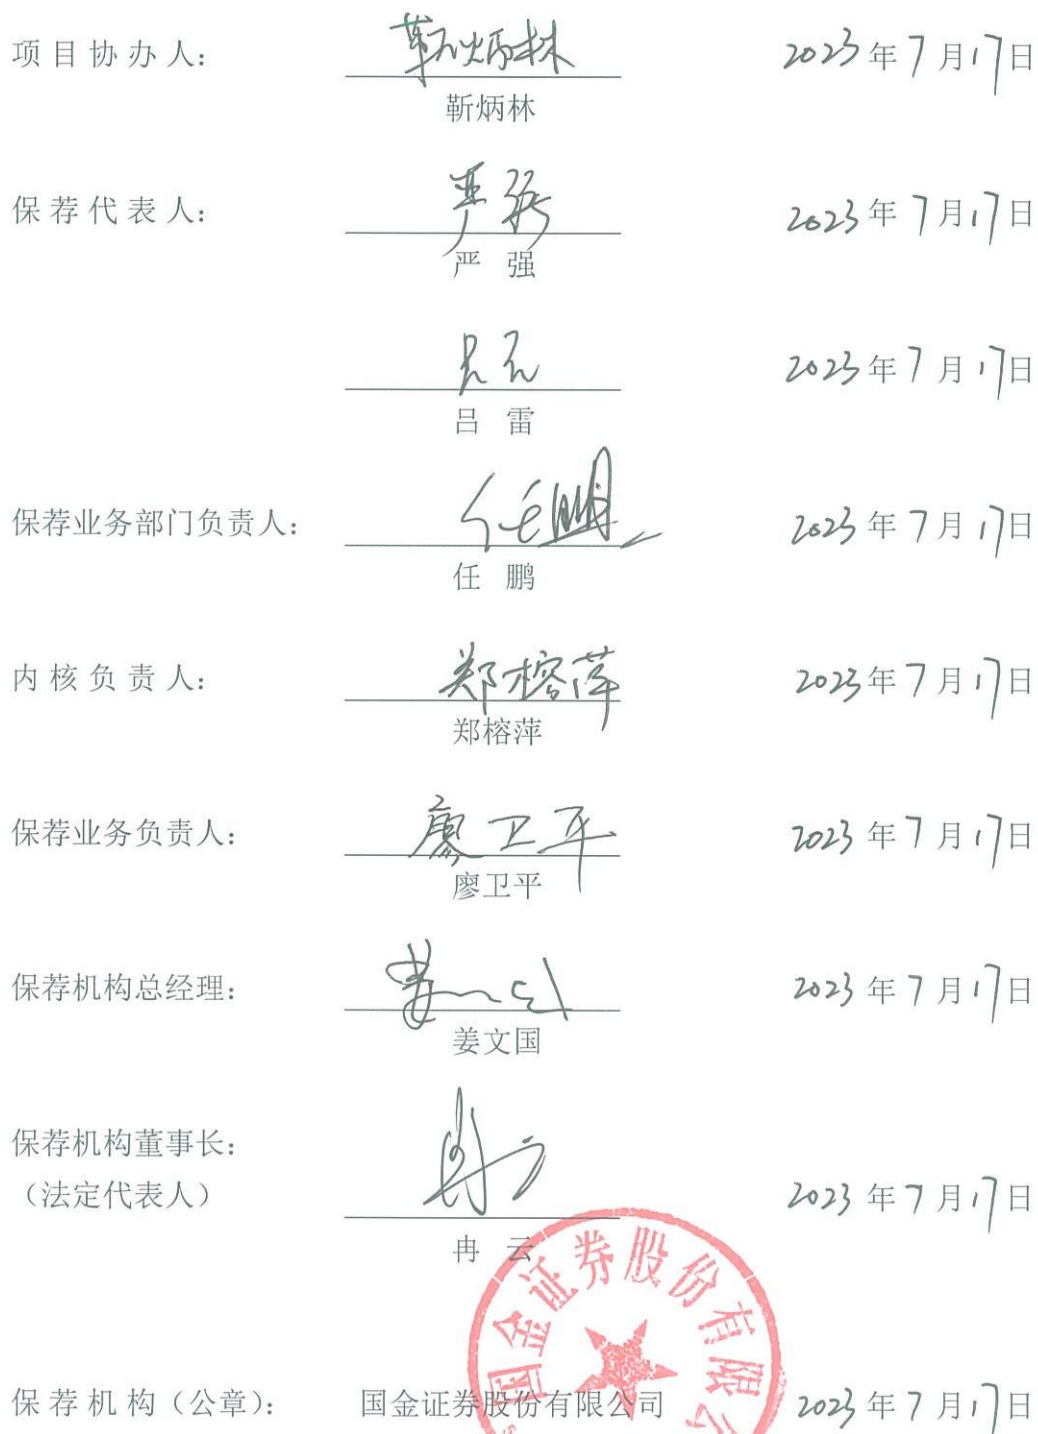 项目协办人： 靳炳林 2023年7月17日
靳炳林
保荐代表人： 严强 2023年7月17日
严 强
2023年7月17日
吕 雷
保荐业务部门负责人： 任鹏 2023年7月17日
任 鹏
内核负责人： 郑榕萍 2023年7月17日
郑榕萍
保荐业务负责人： 廖卫平 2023年7月17日
廖卫平
保荐机构总经理： 2023年7月17日
姜文国
保荐机构董事长：
（法定代表人） 2023年7月17日
冉 云
国金证券股份有限公
保荐机构（公章）： 国金证券股份有限公司 2023年7月17日